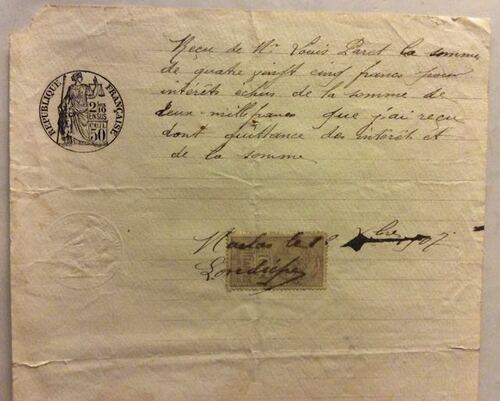 RÉPUBLIQUE FRANÇAISE
2/10es
EN SUS
50
Reçu de Mr Louis Paret la somme
de quatre vingt cinq francs pour
intérêts échus de la somme de
deux mille francs que j'ai reçu
dont quittance des intérêt et
de la somme
Maclas le 1er 1907